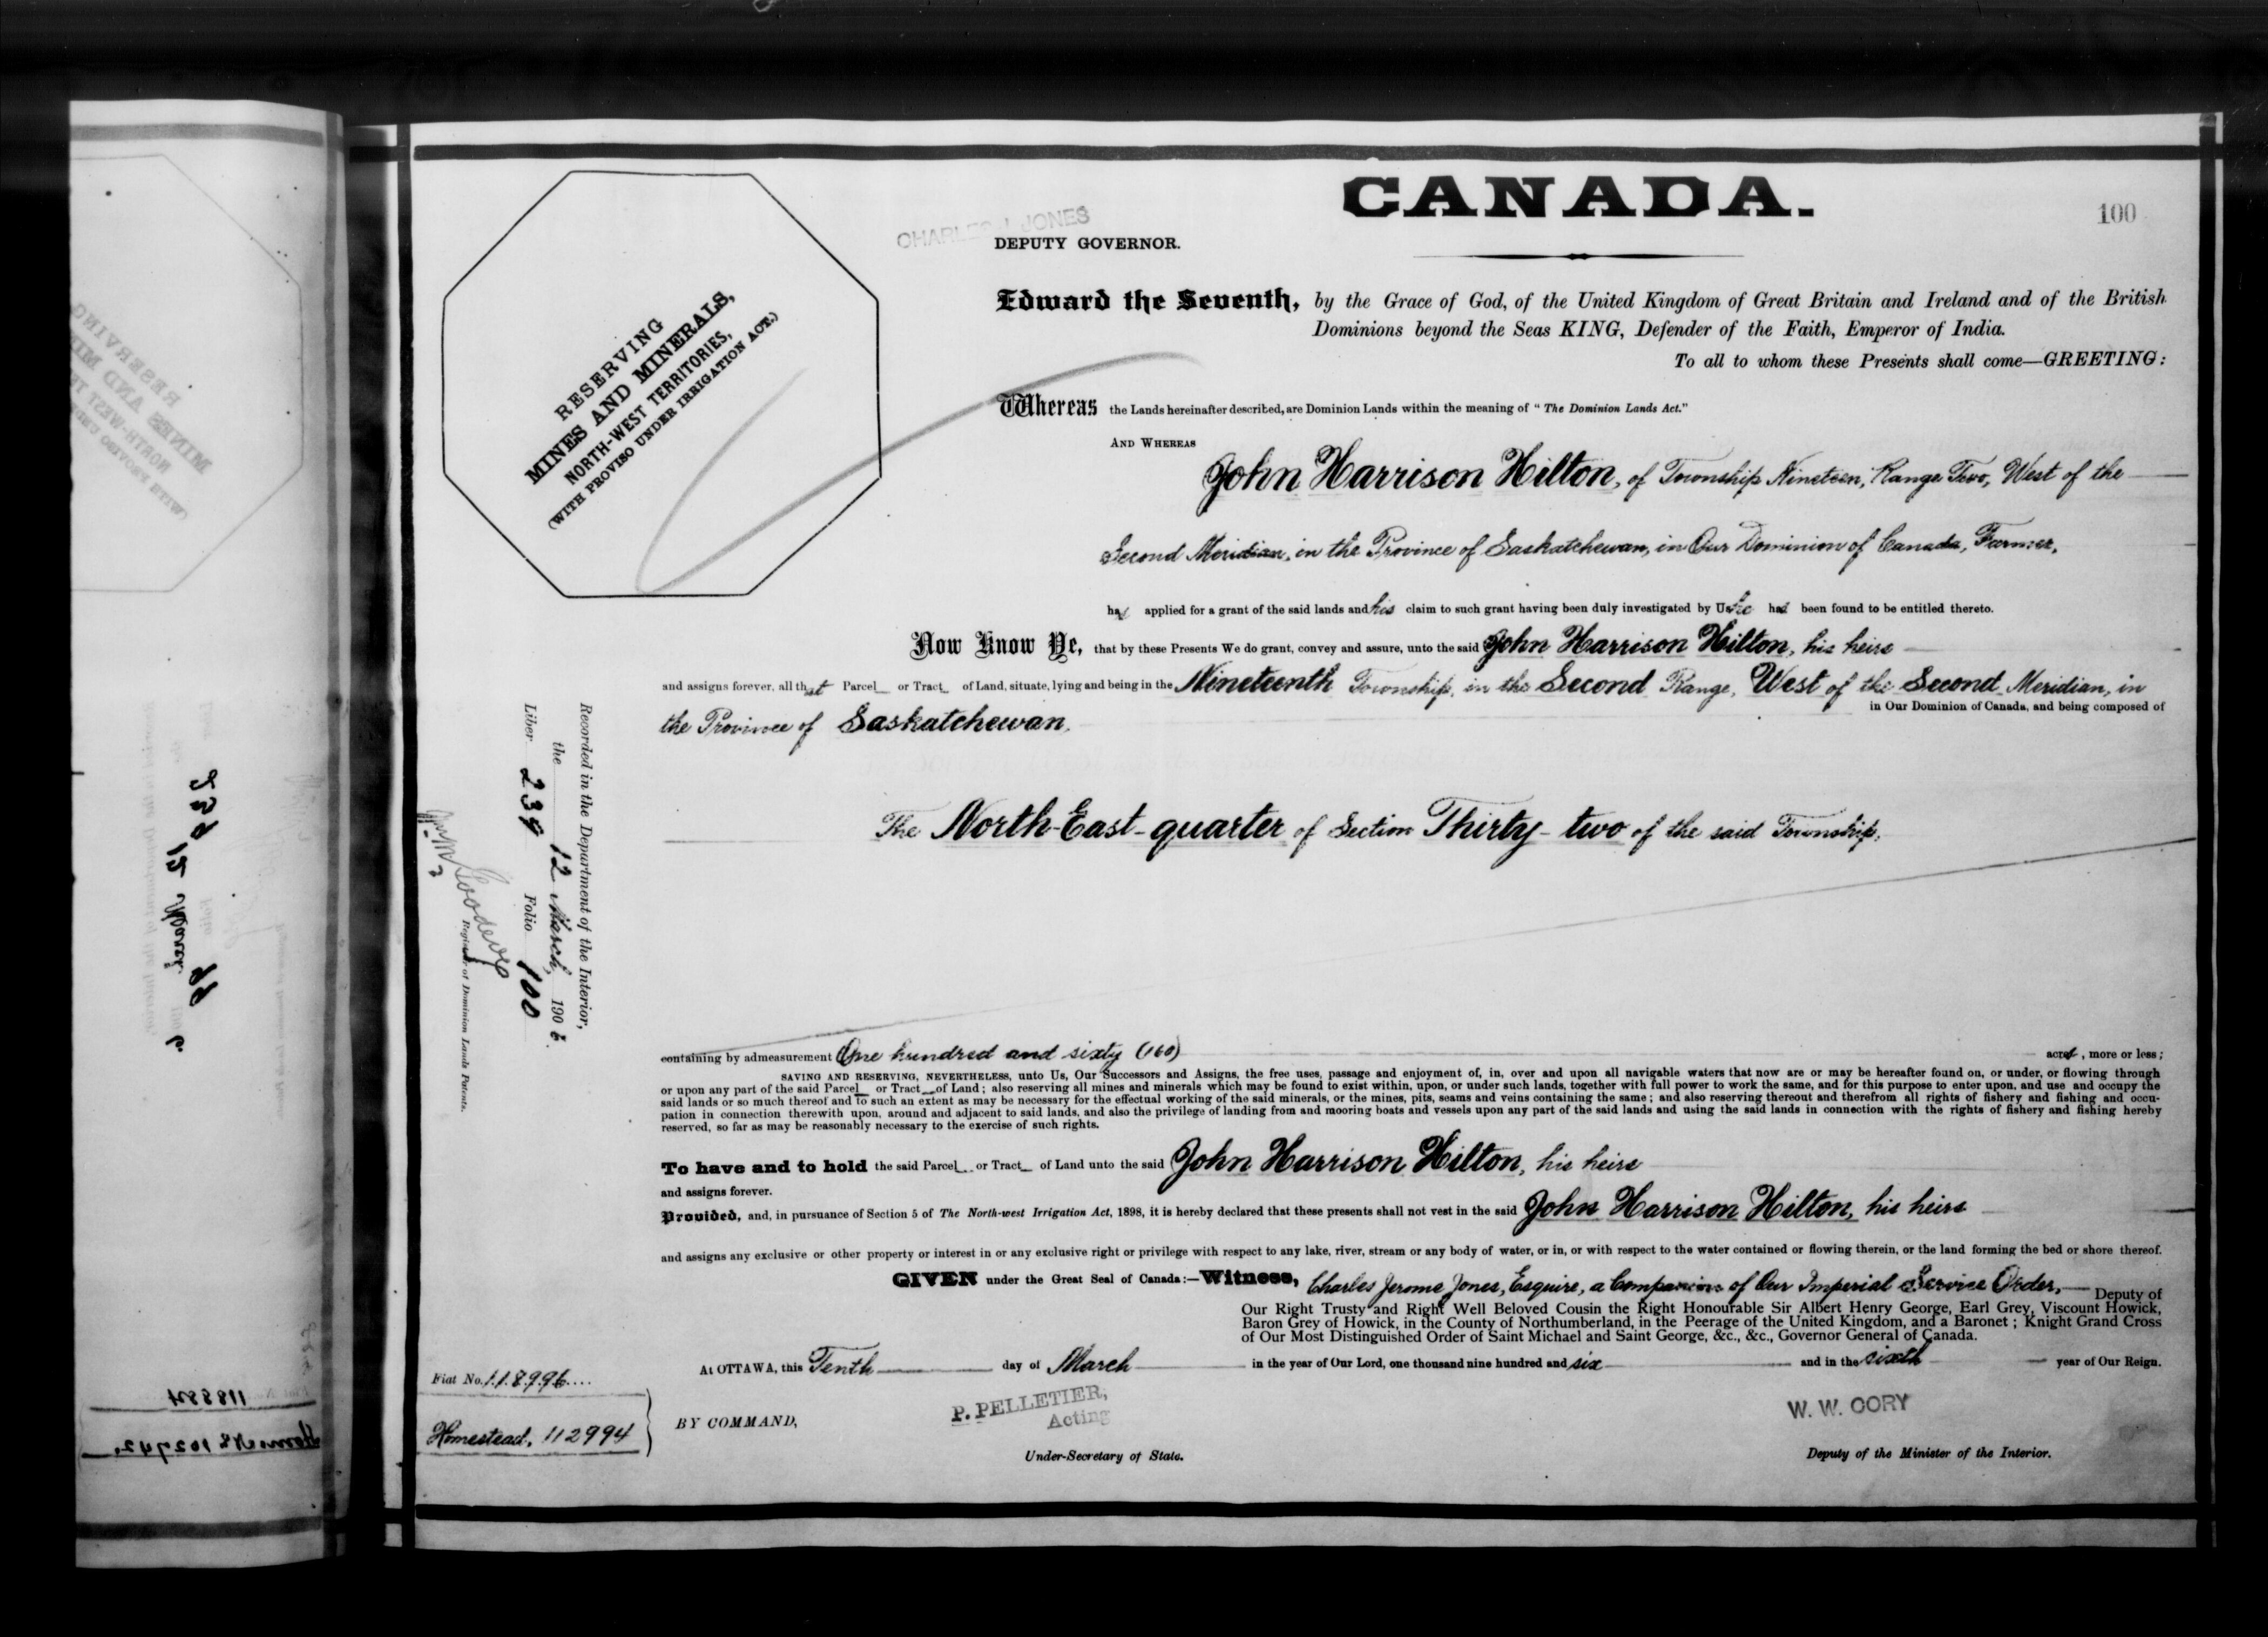 CANADA.
100
CHARLES J. JONES
DEPUTY GOVERNOR.
RESERVING
MINES AND MINERALS,
NORTH-WEST TERRITORIES,
(WITH PROVISO UNDER IRRIGATION ACT.)
Edward the Seventh, by the Grace of God, of the United Kingdom of Great Britain and Ireland and of the British
Dominions beyond the Seas KING, Defender of the Faith, Emperor of India.
To all to whom these Presents shall come—GREETING:
Whereas the Lands hereinafter described, are Dominion Lands within the meaning of "The Dominion Lands Act."
AND WHEREAS
John Harrison Hilton, of Township Nineteen, Range Two, West of the
Second Meridian, in the Province of Saskatchewan, in Our Dominion of Canada, Farmer,
has applied for a grant of the said lands and his claim to such grant having been duly investigated by Us he has been found to be entitled thereto.
Now Know Ye, that by these Presents We do grant, convey and assure, unto the said John Harrison Hilton, his heirs
and assigns forever, all that Parcel or Tract of Land, situate, lying and being in the Nineteenth Township, in the Second Range, West of the Second Meridian, in
in Our Dominion of Canada, and being composed of
the Province of Saskatchewan,
The North-East-quarter of Section Thirty-two of the said Township,
Recorded in the Department of the Interior,
the 12 March, 1906.
Liber 239 Folio 100
Registrar of Dominion Lands Patents.
containing by admeasurement One hundred and sixty (160) acres, more or less;
SAVING AND RESERVING, NEVERTHELESS, unto Us, Our Successors and Assigns, the free uses, passage and enjoyment of, in, over and upon all navigable waters that now are or may be hereafter found on, or under, or flowing through
or upon any part of the said Parcel or Tract of Land; also reserving all mines and minerals which may be found to exist within, upon, or under such lands, together with full power to work the same, and for this purpose to enter upon, and use and occupy the
said lands or so much thereof and to such an extent as may be necessary for the effectual working of the said minerals, or the mines, pits, seams and veins containing the same; and also reserving thereout and therefrom all rights of fishery and fishing and occu-
pation in connection therewith upon, around and adjacent to said lands, and also the privilege of landing from and mooring boats and vessels upon any part of the said lands and using the said lands in connection with the rights of fishery and fishing hereby
reserved, so far as may be reasonably necessary to the exercise of such rights.
To have and to hold the said Parcel or Tract of Land unto the said John Harrison Hilton, his heirs
and assigns forever.
Provided, and, in pursuance of Section 5 of The North-west Irrigation Act, 1898, it is hereby declared that these presents shall not vest in the said John Harrison Hilton, his heirs
and assigns any exclusive or other property or interest in or any exclusive right or privilege with respect to any lake, river, stream or any body of water, or in, or with respect to the water contained or flowing therein, or the land forming the bed or shore thereof.
GIVEN under the Great Seal of Canada:—Witness, Charles Jerome Jones, Esquire, a Companion of Our Imperial Service Order,— Deputy of
Our Right Trusty and Right Well Beloved Cousin the Right Honourable Sir Albert Henry George, Earl Grey, Viscount Howick,
Baron Grey of Howick, in the County of Northumberland, in the Peerage of the United Kingdom, and a Baronet; Knight Grand Cross
of Our Most Distinguished Order of Saint Michael and Saint George, &c., &c., Governor General of Canada.
At OTTAWA, this Tenth day of March in the year of Our Lord, one thousand nine hundred and six and in the sixth year of Our Reign.
Fiat No. 118996
Homestead, 112994
BY COMMAND,
P. PELLETIER,
Acting
Under-Secretary of State.
W. W. CORY
Deputy of the Minister of the Interior.